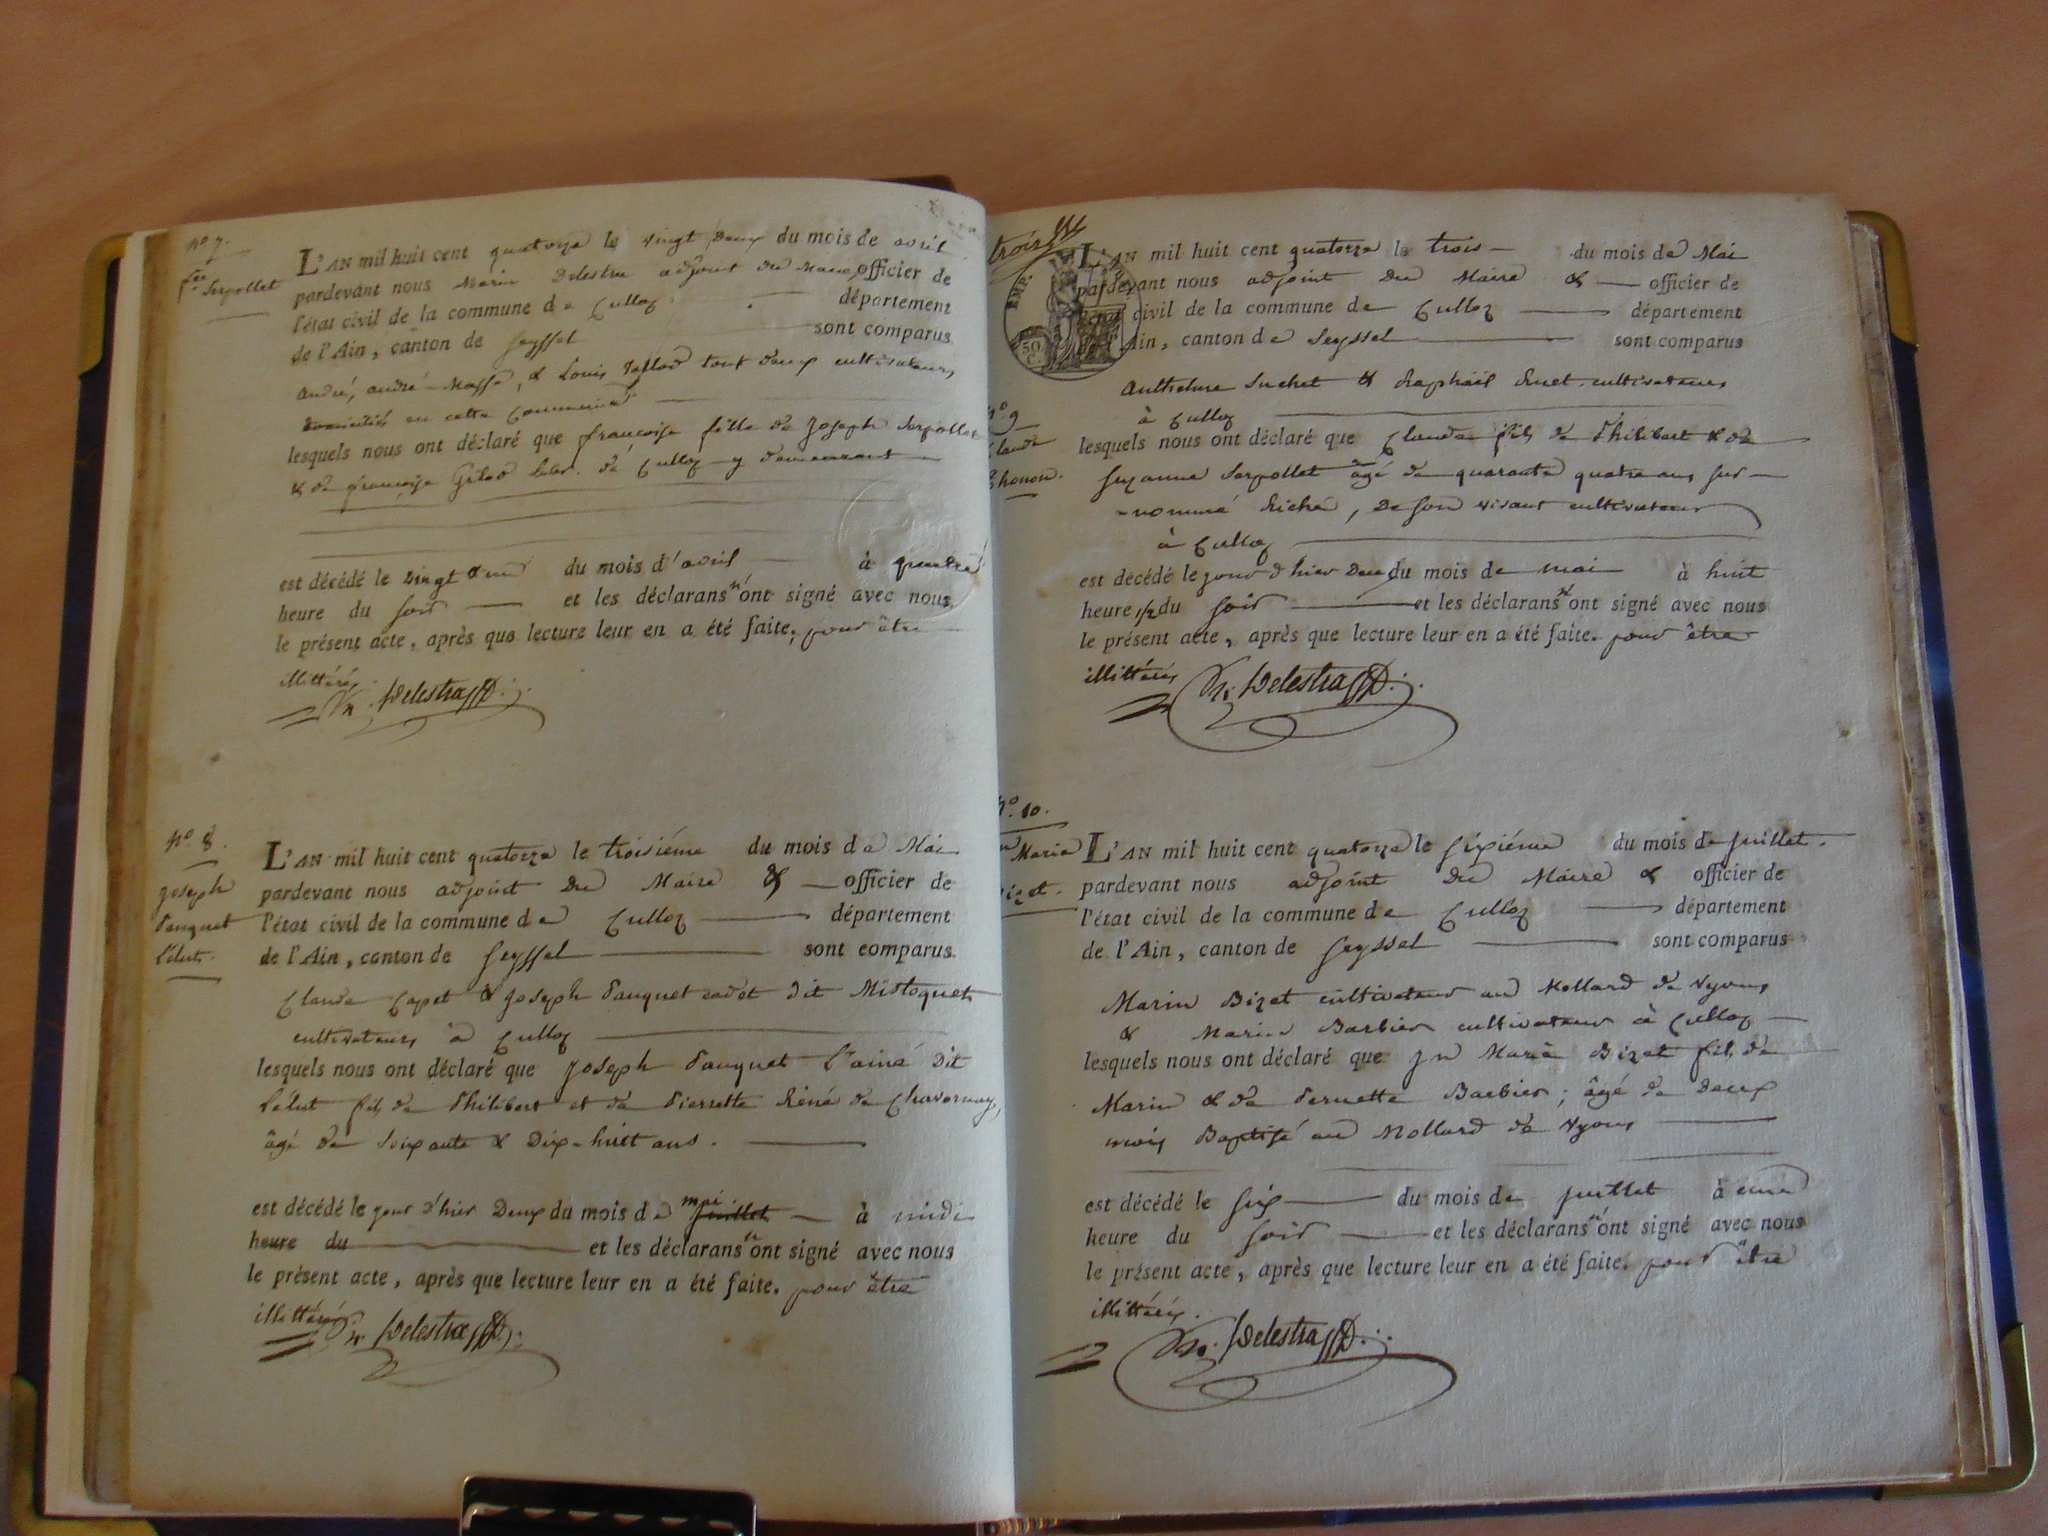 N.o 7.
f.se Serpollet
L'AN mil huit cent quatorze le vingt deux du mois de avril
pardevant nous Marin Delestra adjoint du Maire officier de
l'état civil de la commune de Culloz département
de l'Ain, canton de Seyssel sont comparus
andré, andré Masse, & Louis Vallod tout deux cultivateurs
domiciliés en cette Commune
lesquels nous ont déclaré que françoise fille de Joseph Serpollet
& de françoise de Culloz y demeurant
est décédé le vingt & un du mois d'avril à quatre
heure du soir et les déclarans n'ont signé avec nous
le présent acte, après que lecture leur en a été faite, pour être
illittérés
Delestra
N.o 8.
Joseph
Pauquet
Pélut.
L'AN mil huit cent quatorze le troisiéme du mois de Mai
pardevant nous adjoint du Maire & officier de
l'état civil de la commune de Culloz département
de l'Ain, canton de Seyssel sont comparus
Claude Capet & Joseph Pauquet cadet dit Mistoquet
cultivateurs à Culloz
lesquels nous ont déclaré que Joseph Pauquet l'ainé dit
Pélut fils de Philibert et de Pierrette Réné de Chavornay,
âgé de soixante & dix-huit ans.
est décédé le jour d'hier Deux du mois de juillet mai à midi
heure du et les déclarans n'ont signé avec nous
le présent acte, après que lecture leur en a été faite. pour être
illittérés.
Delestra
trois
IMP.
50
L'AN mil huit cent quatorze le trois du mois de Mai
pardevant nous adjoint du Maire & officier de
civil de la commune de Culloz département
Ain, canton de Seyssel sont comparus
Anthelme Suchet & Raphaël Ruet cultivateurs
à Culloz
N.o 9
Claude
Thonon.
lesquels nous ont déclaré que Claude fils de Philibert & de
Suzanne Serpollet âgé de quarante quatre ans sur-
-nommé Riché, de son vivant cultivateur
à Culloz
est décédé le jour d'hier deux du mois de mai à huit
heure 1/2 du soir et les déclarans n'ont signé avec nous
le présent acte, après que lecture leur en a été faite. pour être
illittérés
Delestra
N.o 10.
Marie
Bizet.
L'AN mil huit cent quatorze le sixiéme du mois de juillet.
pardevant nous adjoint du Maire & officier de
l'état civil de la commune de Culloz département
de l'Ain, canton de Seyssel sont comparus
Marin Bizet cultivateur au Mollard de Vyons
& Marin Barbier cultivateur à Culloz
lesquels nous ont déclaré que Jn Marie Bizet fils de
Marin & de Pernette Barbier; âgé de deux
mois Baptisé au Mollard de Vyons
est décédé le six du mois de juillet à une
heure du soir et les déclarans n'ont signé avec nous
le présent acte, après que lecture leur en a été faite. pour être
illittérés.
Delestra